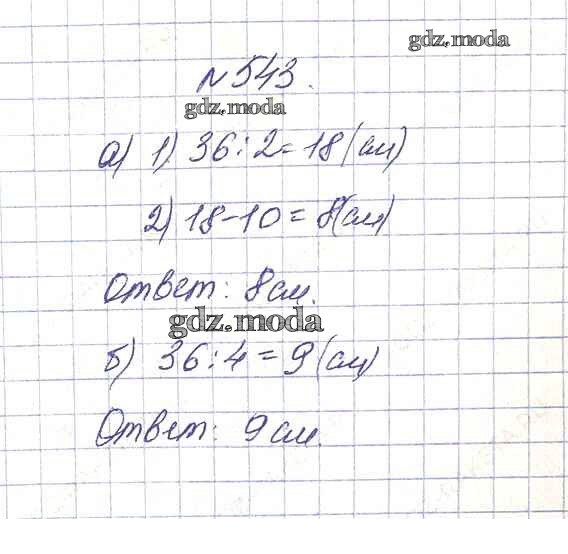 gdz.moda
№543.
gdz.moda
а) 1) 36:2=18(см)
2) 18-10=8(см)
Ответ: 8см.
gdz.moda
б) 36:4=9(см)
Ответ: 9см.